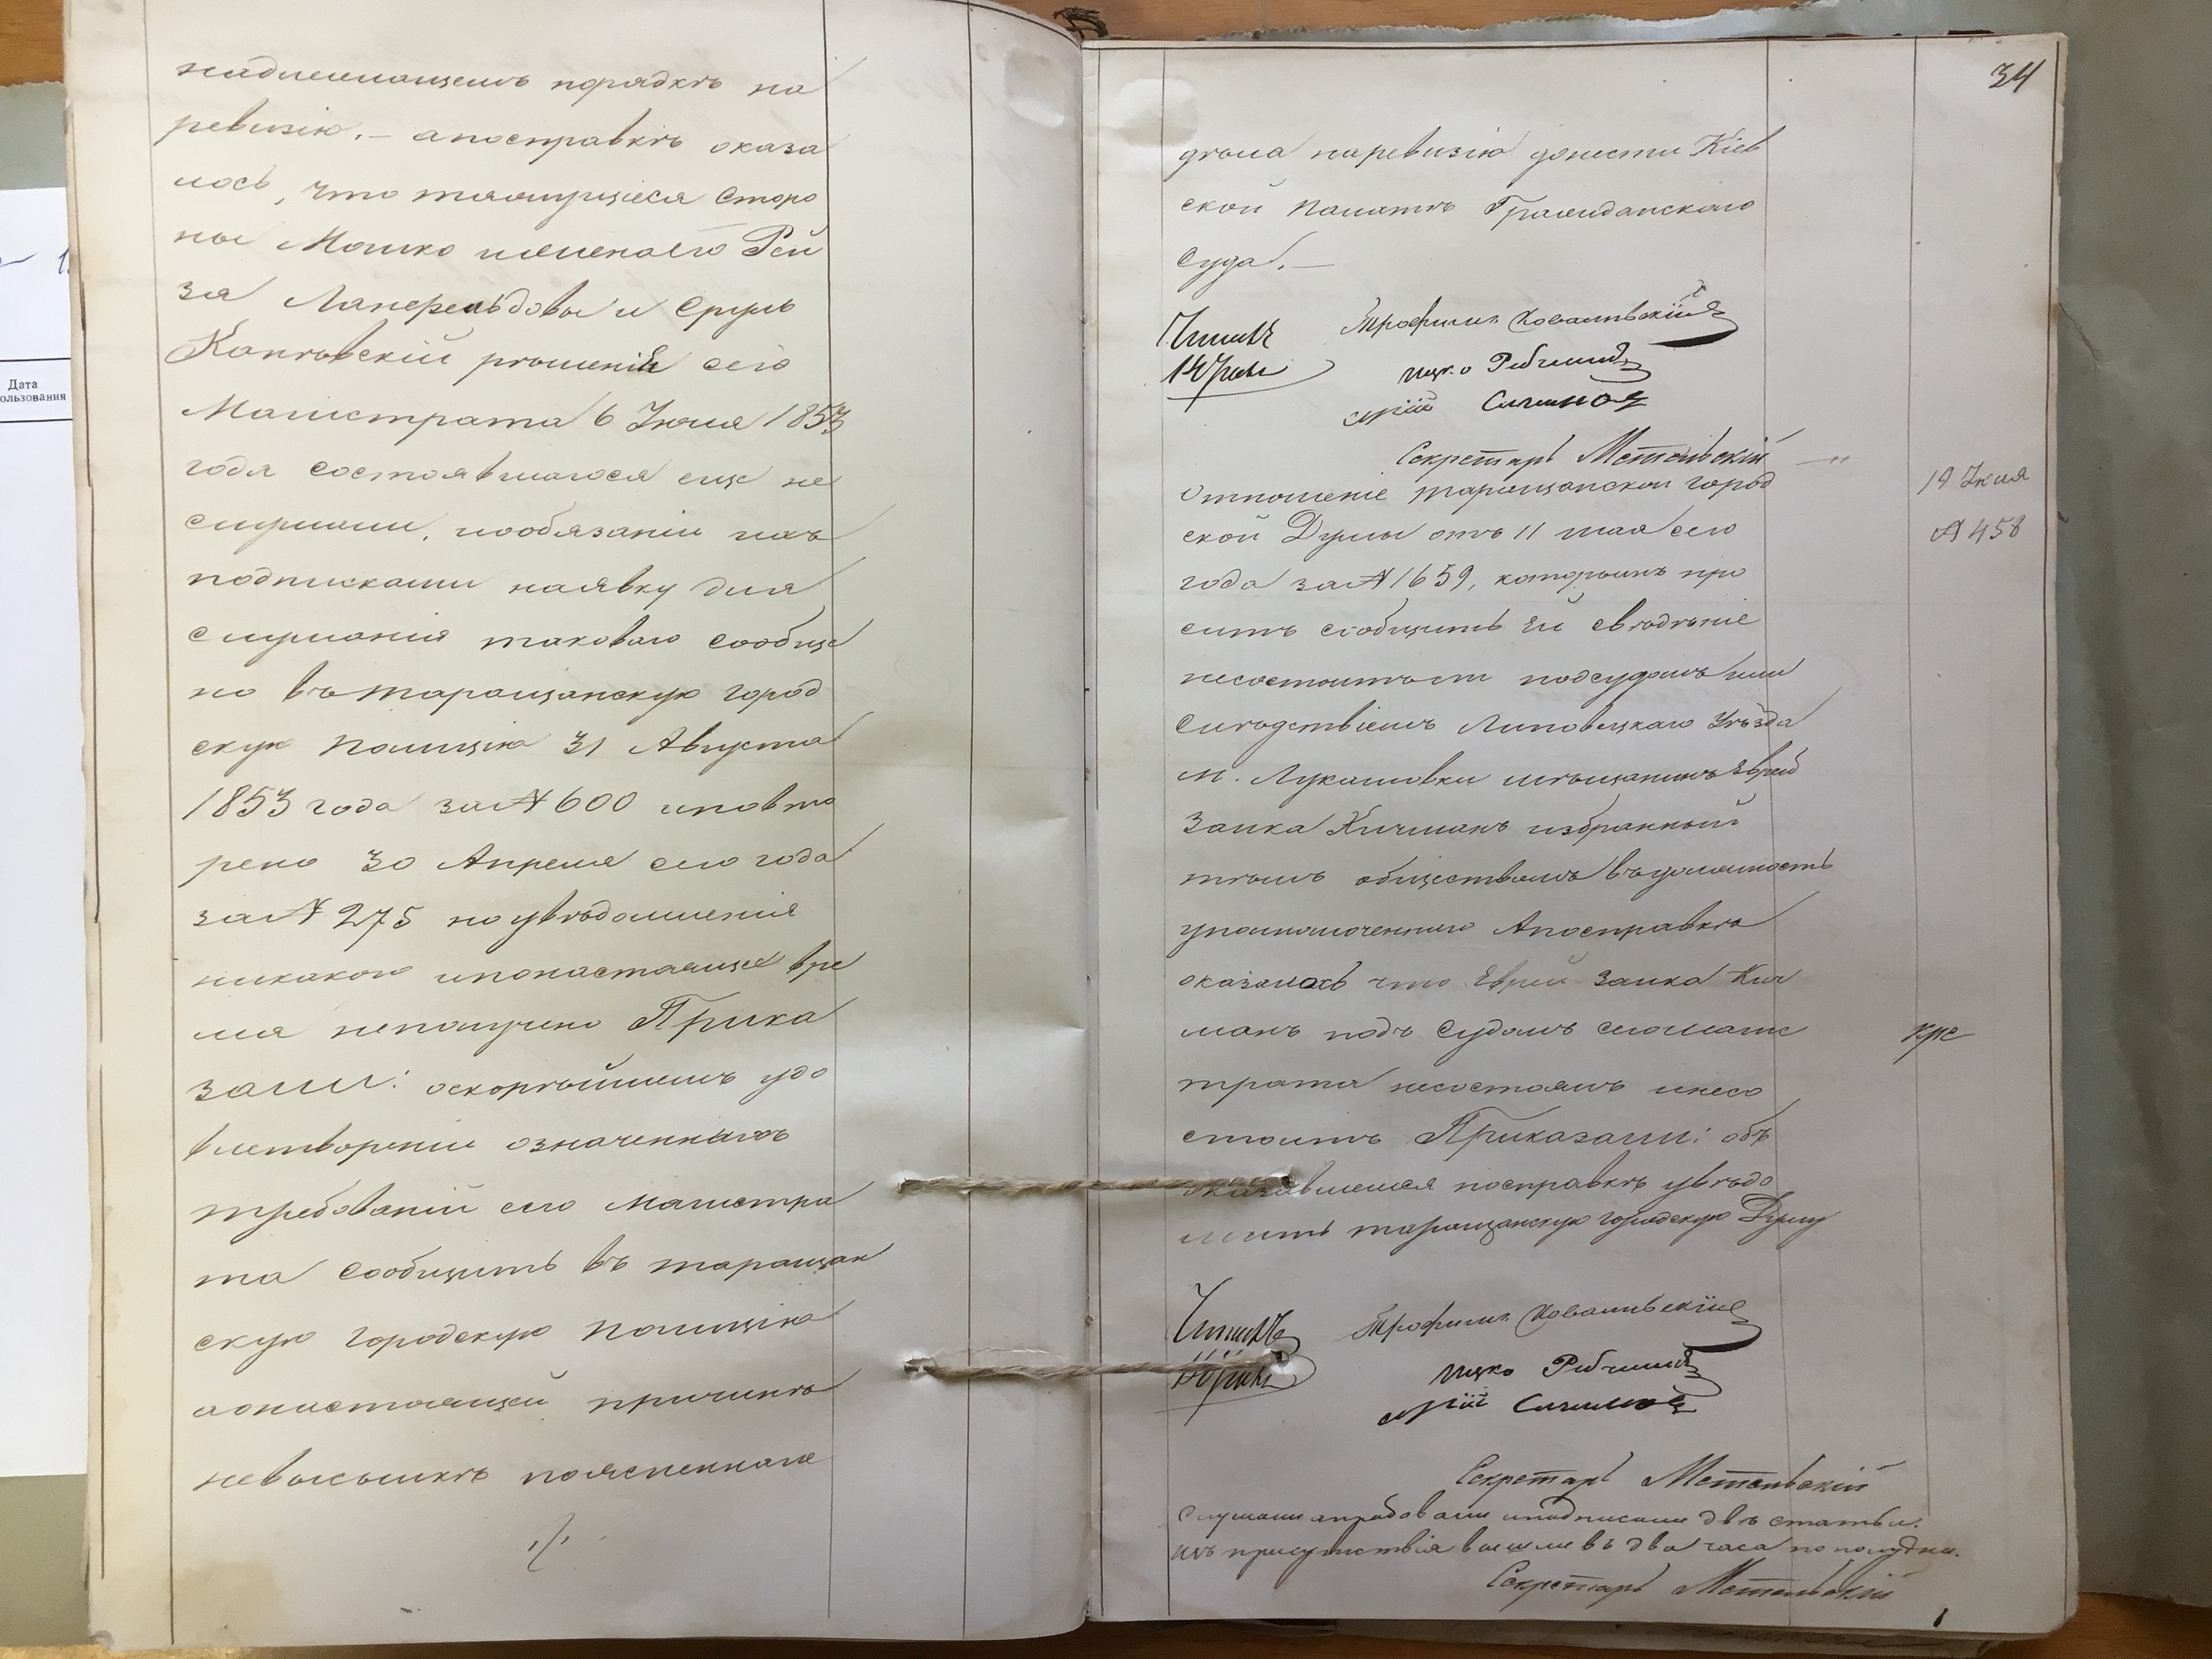 надлежащемъ порядкѣ на
ревизію. – апосправкѣ оказа
лось, что тяжущіеся Сторо
ны Мошко именемъ Рей
зы Лаперельдовы и Сруль
Каневскій рѣшеніе сего
Магистрата 6 Іюля 1853
года состоявшагося еще не
слушали, пообязаніи ихъ
подписками наявку для
слушанія таковаго сообще
но въ таращанскую город
скую Полицію 31 Августа
1853 года за № 600 иповто
рено 30 Апреля сего года
за № 275 ноувѣдомленія
никакого ипонастоящее вре
мя неполучено Прика
зали: оскорѣйшемъ удо
влетвореніи означенныхъ
требованій сего Магистра
та сообщить въ таращан
скую городскую Полицію
аонастоящей причинѣ
невысылкѣ поясненнаго
34
дѣла наревизію донести Кіев
ской Палатѣ Гражданскаго
Суда. –
Трофимъ Ковальскій
Ицко
Сергій
Секретарь Метельскій
Отношеніе таращанской город
ской Думы отъ 11 мая сего
года за № 1659, которымъ про
ситъ сообщить ей свѣдѣніе
несостоитъ ли подсудомъ или
Слѣдствіемъ Липовецкаго Уѣзда
м. Лукашовки мѣщанинъ Еврей
Заика Кичманъ избранный
тѣмъ обществомъ въ должность
уполномоченнаго Апосправкѣ
оказалось что Еврей Заика Кич
манъ подъ Судомъ сегоМагис
трата несостоялъ инесо
стоитъ Приказали: объ
оказавшемся посправкѣ увѣдо
мить таращанскую городскую Думу
19 Іюля
№ 458
Трофимъ Ковальскій
Ицко
Сергій
Секретарь Метельскій
Слушали апробовали иподписали двѣ статьи.
изъ присутствія вышли въ два часа по полудни.
Секретарь Метельскій
Дата
ользования